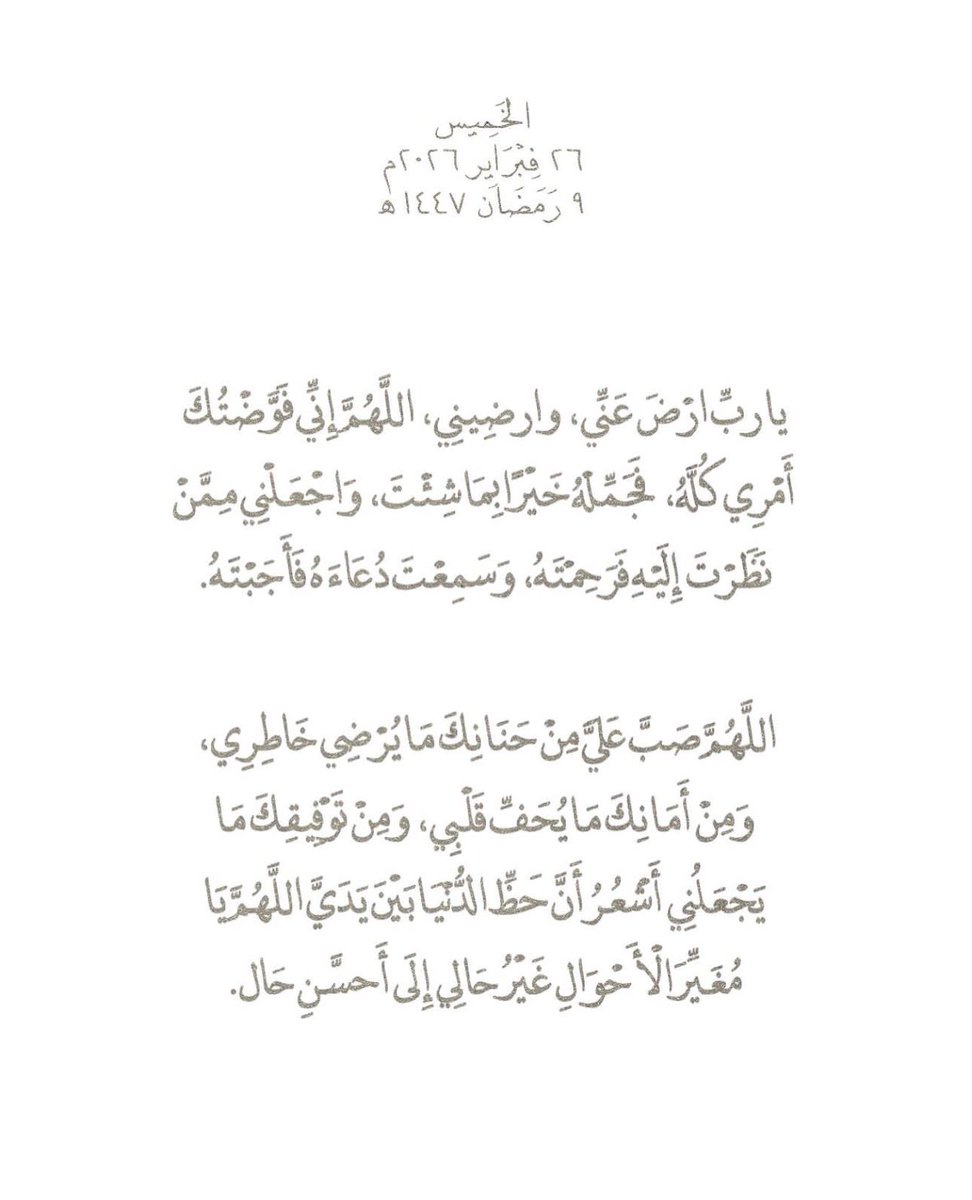 الخَمِيس
٢٦ فِبْرَايِر ٢٠٢٦م
٩ رَمَضَان ١٤٤٧هـ
يا ربِّ ارْضَ عَنِّي، وارضِيني، اللَّهُمَّ إِنِّي فَوَّضْتُكَ
أَمْرِي كُلَّهُ، فَجَمِّلْهُ خَيْرًا بِمَا شِئْتَ، وَاجْعَلْنِي مِمَّنْ
نَظَرْتَ إِلَيْهِ فَرَحِمْتَهُ، وَسَمِعْتَ دُعَاءَهُ فَأَجَبْتَهُ.
اللَّهُمَّ صَبَّ عَلَيَّ مِنْ حَنَانِكَ مَا يُرْضِي خَاطِرِي،
وَمِنْ أَمَانِكَ مَا يُحَفِّ قَلْبِي، وَمِنْ تَوْفِيقِكَ مَا
يَجْعَلُنِي أَشْعُرُ أَنَّ حَظِّ الدُّنْيَا بَيْنَ يَدَيَّ اللَّهُمَّ يَا
مُغَيِّرَ الْأَحْوَالِ غَيْرُ حَالِي إِلَى أَحسَّنِ حَال.